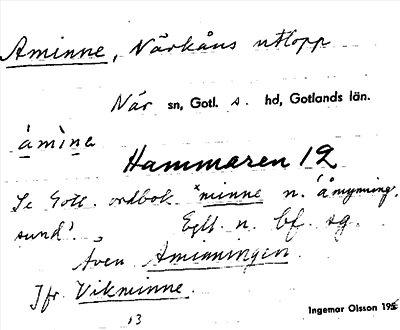 Aminne, Närkåns utlopp
När sn, Gotl. s. hd, Gotlands län.
àmìnɐ
Hammaren 12
Se Gotl. ordbok *minne n. 'åmynning,
sund'. Egtl. n. bf. sg.
Även Åminningen.
Jfr Vikminne.
13
Ingemar Olsson 195